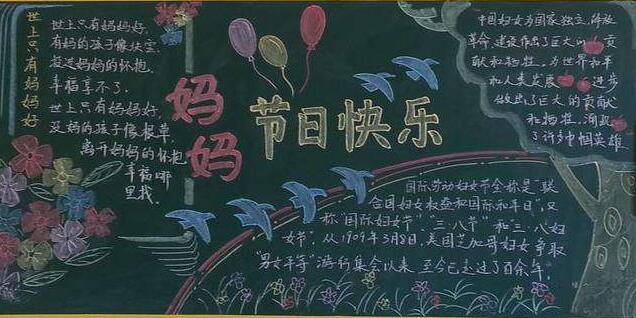 世上只有妈妈好
世上只有妈妈好,
有妈的孩子像块宝,
投进妈妈的怀抱,
幸福享不了。
世上只有妈妈好,
没妈的孩子像根草
离开妈妈的怀抱
幸福哪
里找。
妈妈
节日快乐
中国妇女为国家独立、解放
革命、建设作出了巨大的贡
献和牺牲。为世界和平
和人类发展 进步
做出了巨大的贡献
和牺牲,涌现
了许多巾帼英雄
国际劳动妇女节全称是“联
合国妇女权益和国际和平日”,又
称“国际妇女节”“三·八节”和“三·八妇
女节”。从1909年3月8日,美国芝加哥妇女争取
男女平等”游行集会以来至今已走过了百余年。